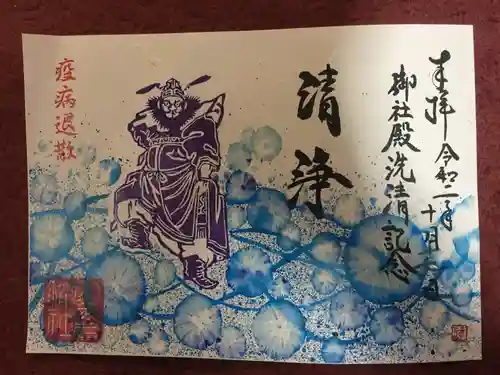 奉拝 令和二年十月二日
御社殿洗清記念
清浄
疫病退散